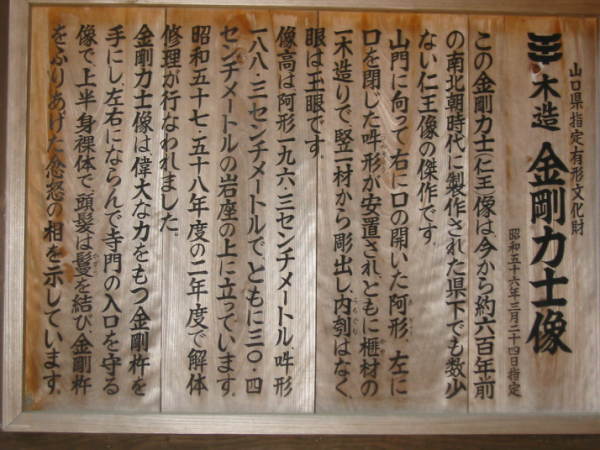 山口県指定有形文化財
木造 金剛力士像
昭和五十六年三月二十四日指定
この金剛力士(仁王)像は、今から約六百年前
の南北朝時代に製作された県下でも数少
ない仁王像の傑作です。
山門に向って右に口の開いた阿形、左に
口を閉じた吽形が安置され、ともに榧材の
一木造りで、竪一材から彫出し、内刳はなく、
眼は玉眼です。
像高は阿形一九六・三センチメートル、吽形
一八八・三センチメートルで、ともに三〇・四
センチメートルの岩座の上に立っています。
昭和五十七・五十八年度の二年度で解体
修理が行なわれました。
金剛力士像は偉大な力をもつ金剛杵を
手にし、左右にならんで寺門の入口を守る
像で、上半身裸体で、頭髪は鬘を結び、金剛杵
をふりあげた忿怒の相を示しています。